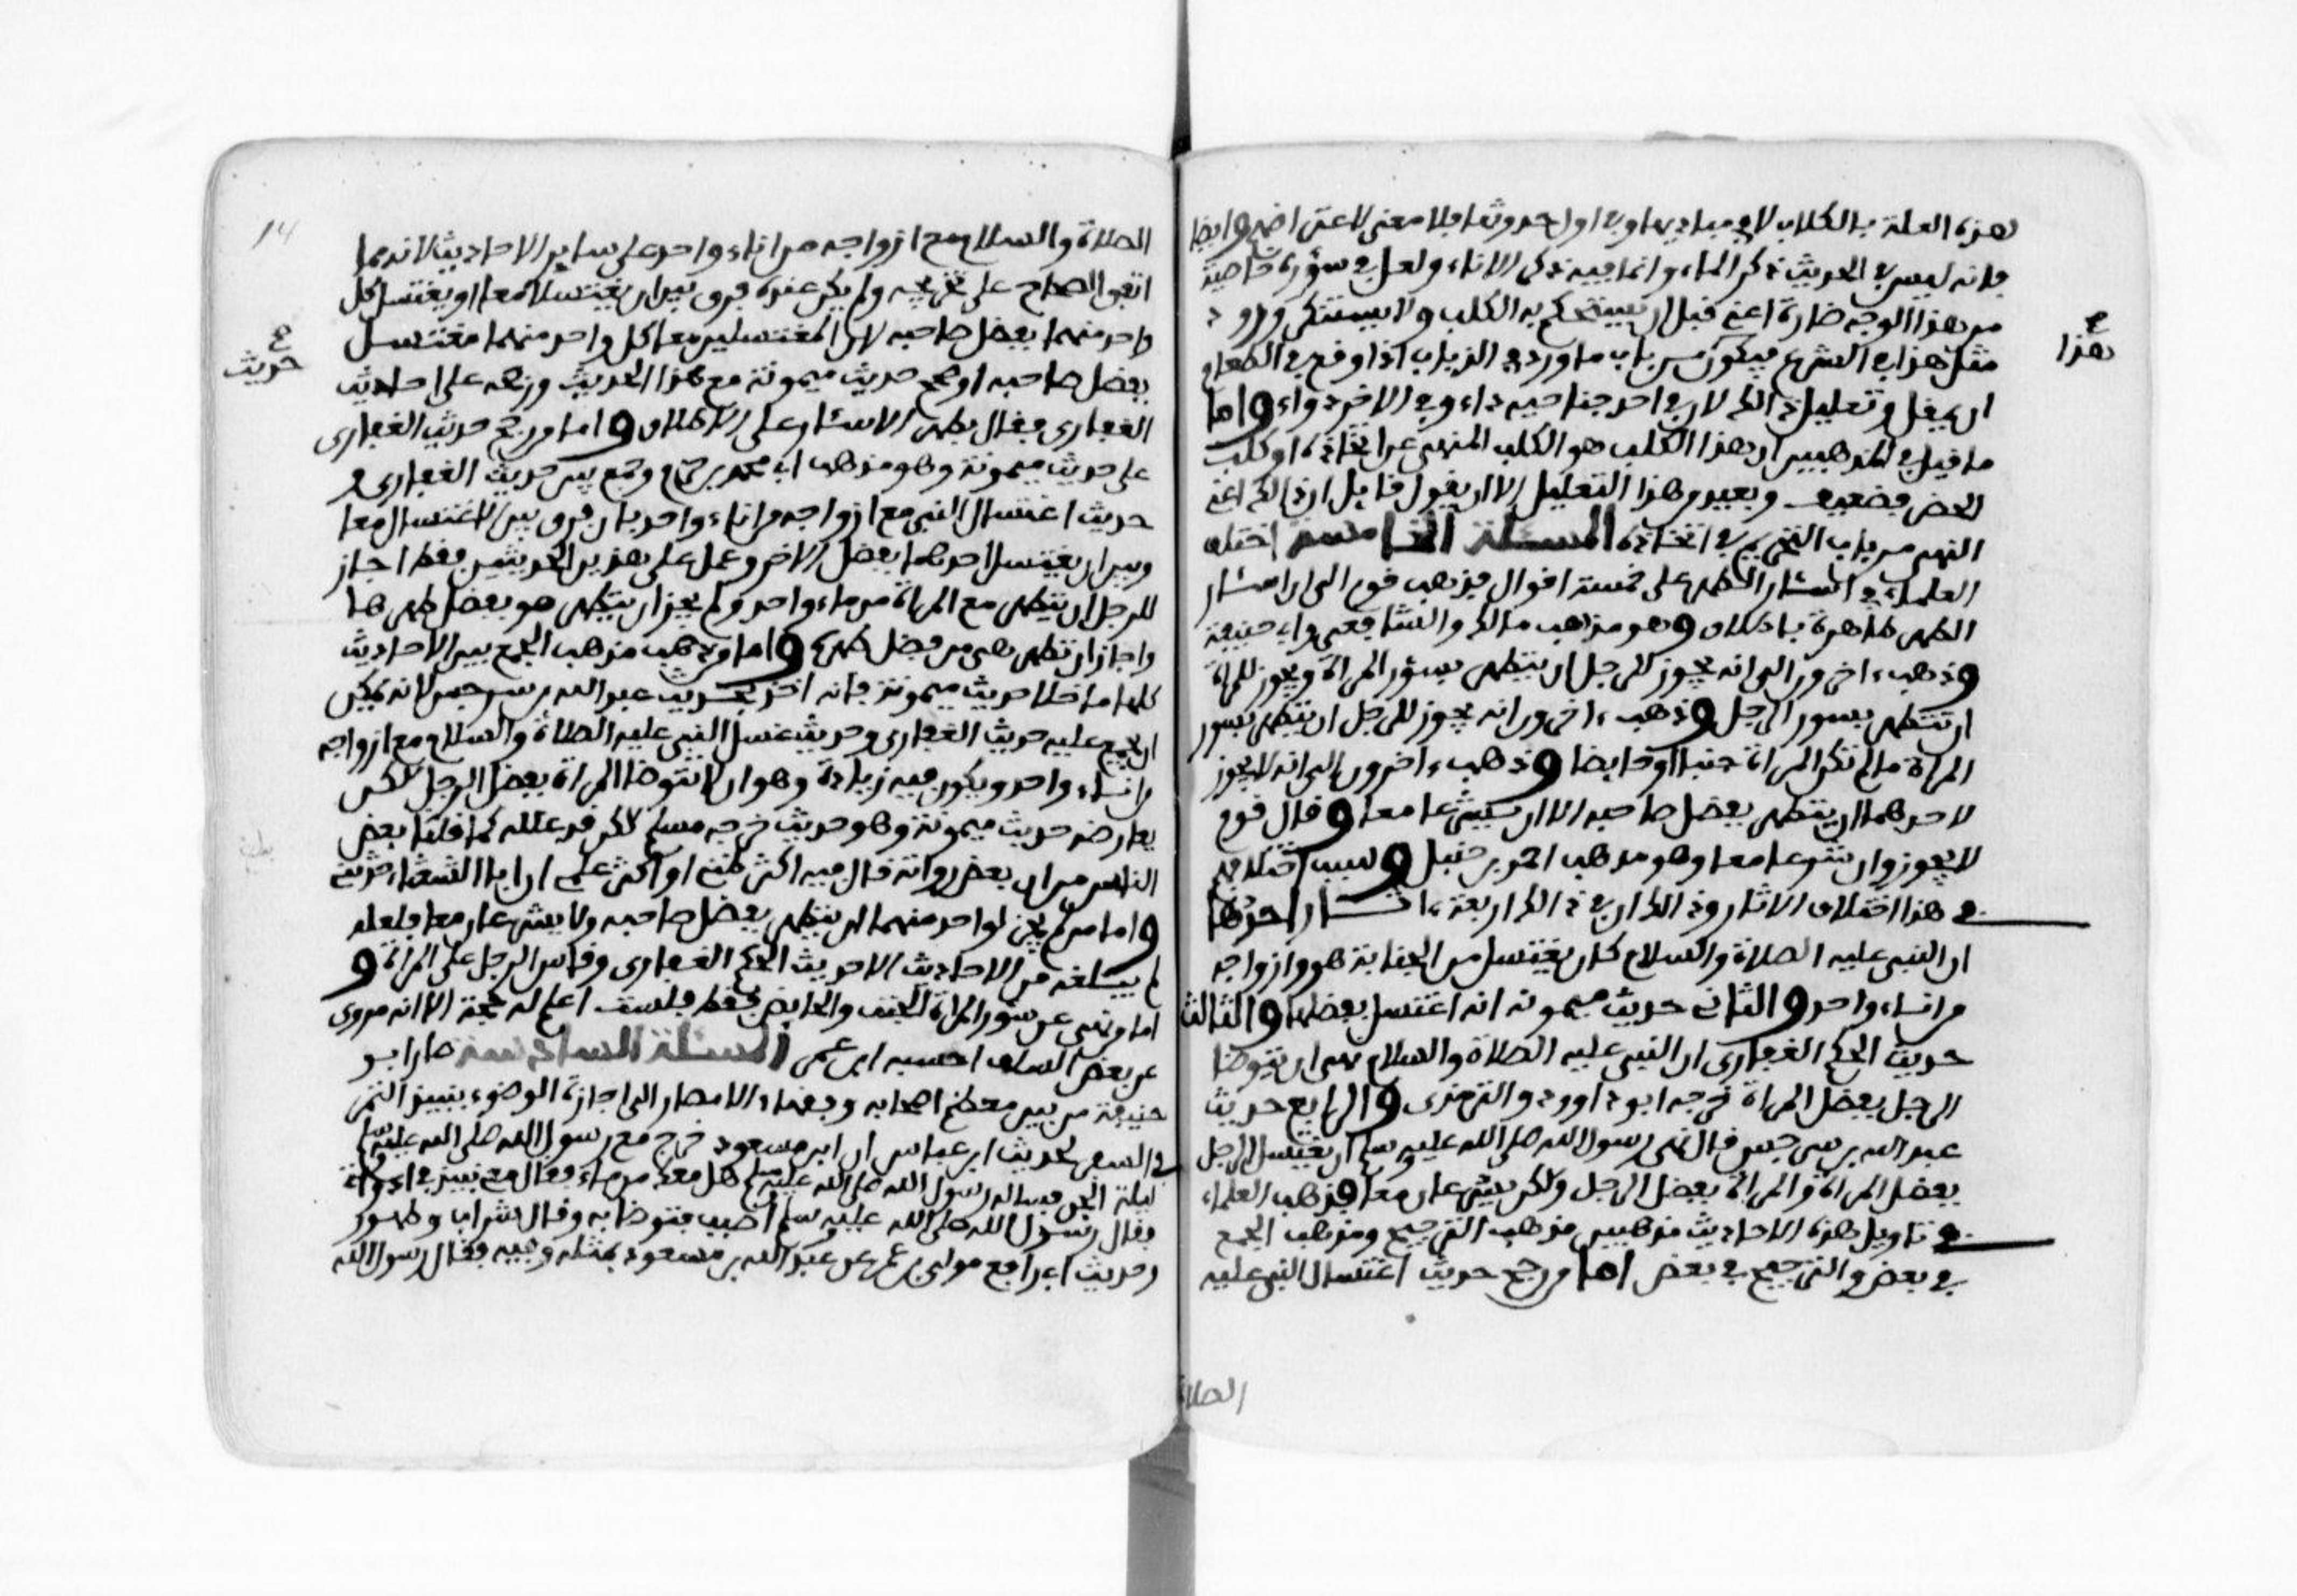 هذه العلة بالكلاب لا في مباديها وفي اول حدوثها فلا معنى لاعتراضهم وايضا
فانه ليس في الحديث ذكر الماء وانما فيه ذكر الاناء ولعل في سؤره خاصية
من هذا الوجه ضارة اعني قبل ان يستحكم به الكلب ولا يستنكر ورود
مثل هذا في الشرع فيكون من باب ما ورد في الذباب اذا وقع في الطعام
هذا
ان يمقل وتعليل ذالك لان في احد جناحيه داء وفي الاخر دواء واما
ما قيل في المذهب من ان هذا الكلب هو الكلب المنهي عن اتخاذه او كلب
الحضر فضعيف وبعيد من هذا التعليل الا ان يقول قايل ان ذالك اعني
النهي من باب التحريم في اتخاذه المسئلة الخامسة اختلف
العلماء في اسئار الطهر على خمسة اقوال فذهب قوم الى ان اسئار
الطهر طاهرة باطلاق وهو مذهب مالك والشافعي وابي حنيفة
وذهب ءاخرون الى انه يجوز للرجل ان يتطهر بسؤر المراة ويجوز للمراة
ان تتطهر بسور الرجل وذهب ءاخرون انه يجوز للرجل ان يتطهر بسور
المراة ما لم تكن المراة جنبا او حايضا وذهب ءاخرون الى انه لا يجوز
لاحدهما ان يتطهر بفضل صاحبه الا ان يشرعا معا وقال قوم
لا يجوز وان شرعا معا وهو مذهب احمد بن حنبل وسبب اختلافهم
في هذا اختلاف الاثار وذالك ان في ذالك اربعة ءاثار احدها
ان النبي عليه الصلاة والسلام كان يغتسل من الجنابة هو وازواجه
من اناء واحد والثاني حديث ميمونة انه اغتسل بفضلها والثالث
حديث الحكم الغفاري ان النبي عليه الصلاة والسلام نهى ان يتوضا
الرجل بفضل المراة خرجه ابو داوود والترمذي والرابع حديث
عبد الله بن سرجس قال نهى رسول الله صلى الله عليه وسلم ان يغتسل الرجل
بفضل المراة والمراة بفضل الرجل ولاكن يشرعان معا فذهب العلماء
في تاويل هذه الاحاديث مذهبين مذهب الترجيح ومذهب الجمع
في بعض والترجيح في بعض اما من رجح حديث اغتسال النبي عليه
الصلاة
14
الصلاة والسلام مع ازواجه من اناء واحد على ساير الاحاديث لانه مما
اتفق الصحاح على تخريجه ولم يكن عنده فرق بين ان يغتسلا معا او يغتسل كل
واحد منهما بفضل صاحبه لان المغتسلين معا كل واحد منهما مغتسل
بفضل صاحبه او صحح حديث ميمونة مع هذا الحديث ورجحه على حديث
حديث
الغفاري فقال بطهر الاسئار على الاطلاق واما من رجح حديث الغفاري
على حديث ميمونة وهو مذهب ابي محمد بن حزم وجمع بين حديث الغفاري و
حديث اغتسال النبي مع ازواجه من اناء واحد بان فرق بين الاغتسال معا
وبين ان يغتسل احدهما بفضل الاخر وعمل على هذين الحديثين فقط اجاز
للرجل ان يتطهر مع المراة من ماء واحد ولم يجز ان يتطهر هو بفضل طهرها
واجاز ان تطهر هي من فضل طهره واما من ذهب مذهب الجمع بين الاحاديث
كلها ما خلا حديث ميمونة فانه اخذ بحديث عبد الله بن سرجس لانه يمكن
ان يجمع عليه حديث الغفاري وحديث غسل النبي عليه الصلاة والسلام مع ازواجه
من اناء واحد ويكون فيه زيادة وهو ان لا تتوضا المراة بفضل الرجل لاكن
يعارضه حديث ميمونة وهو حديث خرجه مسلم لاكن قد علله كما قلنا بعض
الناس من ان بعض رواته قال فيه اكثر ظني او اكثر علمي ان ابا الشعثاء حدثني
واما من لم يجز لواحد منهما ان يتطهر بفضل صاحبه ولا يشرعان معا فلعله
لم يبلغه من الاحاديث الا حديث الحكم الغفاري وقاس الرجل على المراة و
اما من نهى عن سؤر المراة الجنب والحايض فقط فلست اعلم له حجة الا انه مروي
عن بعض السلف احسبه ابن عمر المسئلة السادسة صار ابو
حنيفة من بين معظم اصحابه وفقهاء الامصار الى اجازة الوضوء بنبيذ التمر
في السفر لحديث ابن عباس ان ابن مسعود خرج مع رسول الله صلى الله عليه وسلم
ليلة الجن فساله رسول الله صلى الله عليه وسلم هل معك من ماء فقال معي نبيذ في اداوة
فقال رسول الله صلى الله عليه وسلم اصبب فتوضا به وقال شراب وطهور
وحديث ابي رافع مولى بن عمر عن عبد الله بن مسعود بمثله وفيه فقال رسول الله